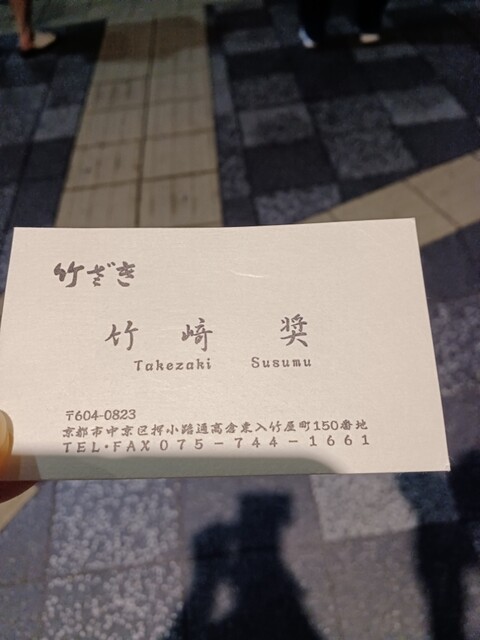 竹ざき
竹崎 奨
Takezaki Susumu
〒604-0823
京都市中京区押小路通高倉東入竹屋町150番地
TEL・FAX 075-744-1661